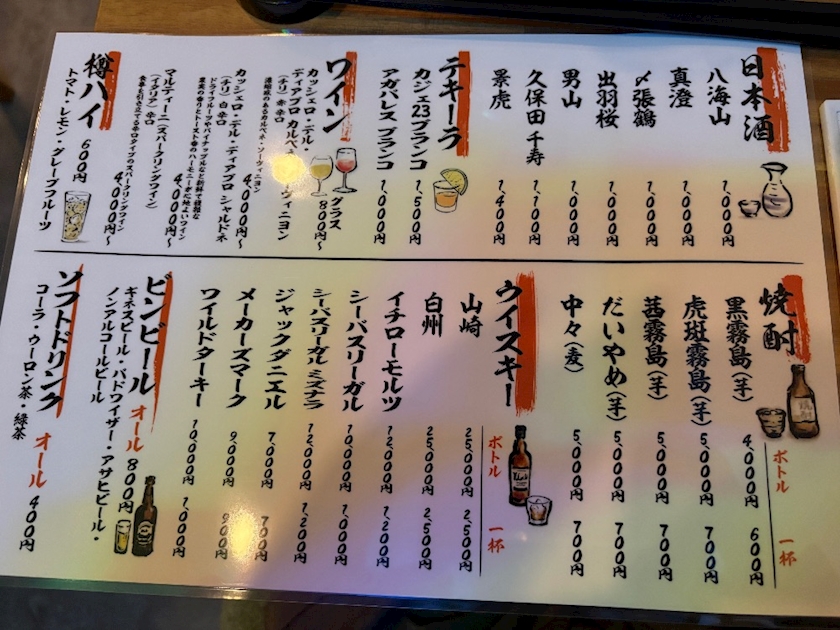 日本酒
八海山 1,000円
真澄 1,000円
〆張鶴 1,000円
出羽桜 1,000円
男山 1,000円
久保田 千寿 1,100円
景虎 1,400円
テキーラ
カジェ23ブランコ 1,500円
アガバレス ブランコ 1,000円
ワイン
グラス 800円〜
カッシェロ・デル・
ディアブロ カルベネ・ソーヴィニヨン
(チリ) 赤 辛口
4,000円〜
カッシェロ・デル・ディアブロ シャルドネ
(チリ) 白 辛口
4,000円〜
マルティーニ(スパークリングワイン)
(イタリア) 辛口
食事を引き立てる辛口タイプのスパークリングワイン
4,000円〜
樽ハイ 600円
トマト・レモン・グレープフルーツ
焼酎
ボトル 一杯
黒霧島(芋) 4,000円 600円
虎斑霧島(芋) 5,000円 700円
茜霧島(芋) 5,000円 700円
だいやめ(芋) 5,000円 700円
中々(麦) 5,000円 700円
ウイスキー
ボトル 一杯
山崎 25,000円 2,500円
白州 25,000円 2,500円
イチローモルツ 12,000円 1,200円
シーバスリーガル 10,000円 1,000円
シーバスリーガル ミズナラ 12,000円 1,200円
ジャックダニエル 7,000円 700円
メーカーズマーク 9,000円 900円
ワイルドターキー 10,000円 1,000円
ビンビール オール 800円
ギネスビール・バドワイザー・アサヒビール・
ノンアルコールビール
ソフトドリンク オール 400円
コーラ・ウーロン茶・緑茶